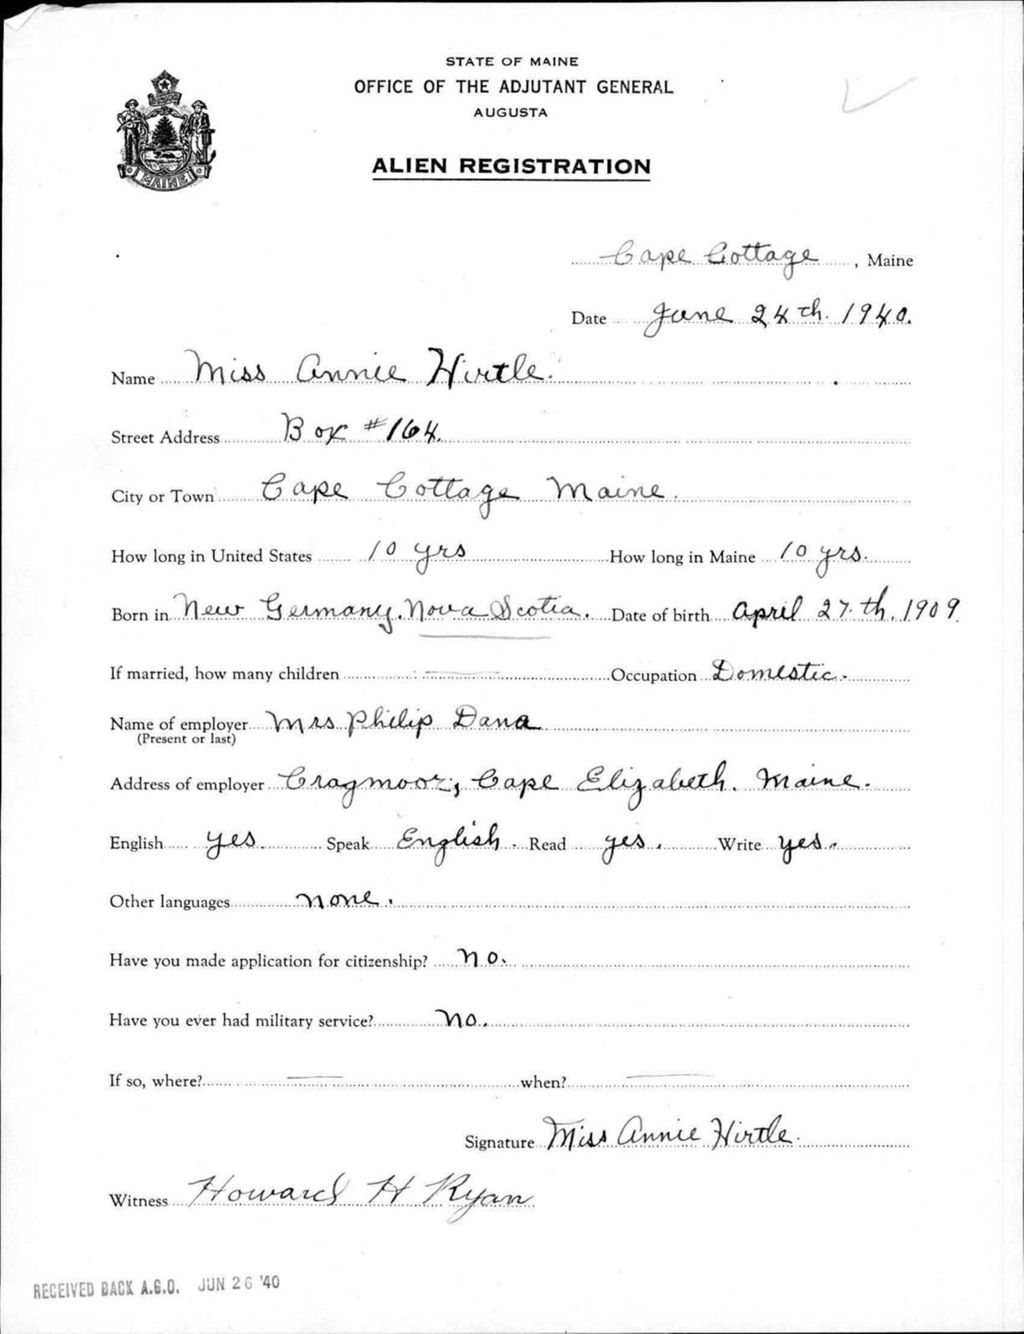 STATE OF MAINE
OFFICE OF THE ADJUTANT GENERAL
AUGUSTA
ALIEN REGISTRATION
MAINE
Cape Cottage, Maine
Date June 24th. 1940.
Name Miss Annie Hirtle.
Street Address Box #164.
City or Town Cape Cottage Maine.
How long in United States 10 yrs How long in Maine 10 yrs.
Born in New Germany. Nova Scotia. Date of birth April 27.th, 1909.
If married, how many children — Occupation Domestic.
Name of employer Mrs Philip Dana
(Present or last)
Address of employer Cragmoor, Cape Elizabeth. Maine.
English yes. Speak English. Read yes. Write yes.
Other languages none.
Have you made application for citizenship? No.
Have you ever had military service? No.
If so, where? — when? —
Signature Miss Annie Hirtle.
Witness Howard H Ryan
RECEIVED BACK A.G.O. JUN 26 '40